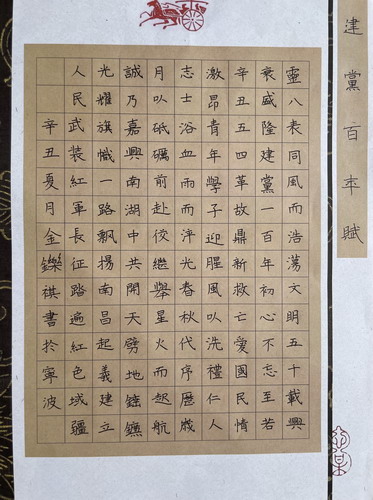 建黨百年賦
靈八表同風而浩蕩文明五十載興
衰盛隆建黨一百年初心不忘至若
辛丑五四革故鼎新救亡愛國民情
激昂青年學子迎腥風以洗禮仁人
志士浴血雨而淬光春秋代序歷歲
月以砥礪前赴後繼舉星火而起航
誠乃嘉興南湖中共開天劈地鎚鐮
光耀旗幟一路飄揚南昌起義建立
人民武裝紅軍長征踏遍紅色域疆
辛丑夏月金鑠祺書於寧波